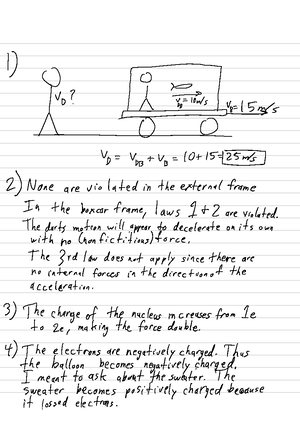 1)
V_D?
V_D = 10m/s
V_B = 15 m/s
V_D = V_DB + V_B = 10 + 15 = 25 m/s
2) None are violated in the external frame
In the boxcar frame, laws 1 & 2 are violated.
The darts motion will appear to decelerate on its own
with no (nonfictitious) force.
The 3rd law does not apply since there are
no internal forces in the direction of the
acceleration.
3) The charge of the nucleus increases from 1e
to 2e, making the force double.
4) The electrons are negatively charged. Thus
the balloon becomes negatively charged.
I meant to ask about the sweater. The
sweater becomes positively charged because
it lossed electrons.